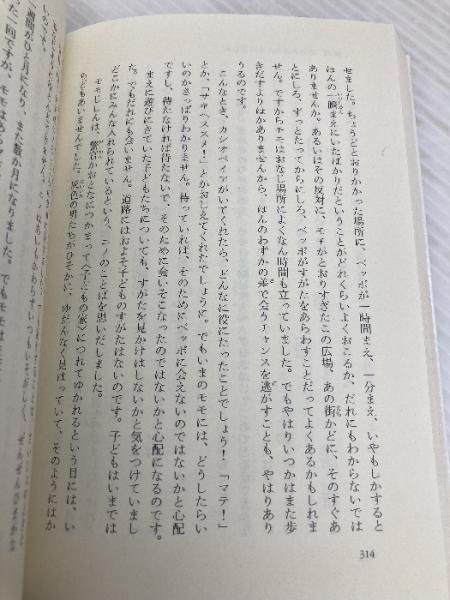 せました。ちょうどとおりかかった場所に、ベッポが一時間まえ、一分まえ、いやもしかすると
ほんの一瞬まえにいたばかりだということがどれくらいよくおこるか、だれにもわからないでは
ありませんか。あるいはその反対に、モモがとおりすぎたこの広場、あの街かどに、そのすぐあ
とにしろ、ずっとたってからにしろ、ベッポがすがたをあらわすことだってよくあるかもしれま
せん。ですからモモはおなじ場所によくなん時間も立っていました。でもやはりいつかはまた歩
きだすよりほかありませんから、ほんのわずかの差で会うチャンスを逃がすことも、やはりあり
うるのです。
こんなとき、カシオペイアがいてくれたら、どんなに役にたったことでしょう！「マテ！」
とか、「サキヘススメ！」とかおしえてくれたでしょうに。でもいまのモモには、どうしたらい
いのかさっぱりわかりません。待っていれば、そのためにベッポに会えないのではないかと心配
ですし、待たなければ待たないで、そのために会いそこなったのではないかと心配になるのです。
まえに遊びにきていた子どもたちについても、すがたを見かけはしないかと気をつけていまし
た。でもだれにも会いません。道路にはおよそ子どものすがたはないのです。子どもはいまでは
どこかにみんな入れられているという、ニノのことばを思いだしました。
モモじしんは、警官かおとなにつかまって〈子どもの家〉につれてゆかれるという目には、い
ちどもあいませんでした。灰色の男たちがひそかに、ゆだんなく見はっていて、そのようにはか
314
一週間がひと月になり、また数か月になりました。でもモモは
た一回ですが、モモはあ